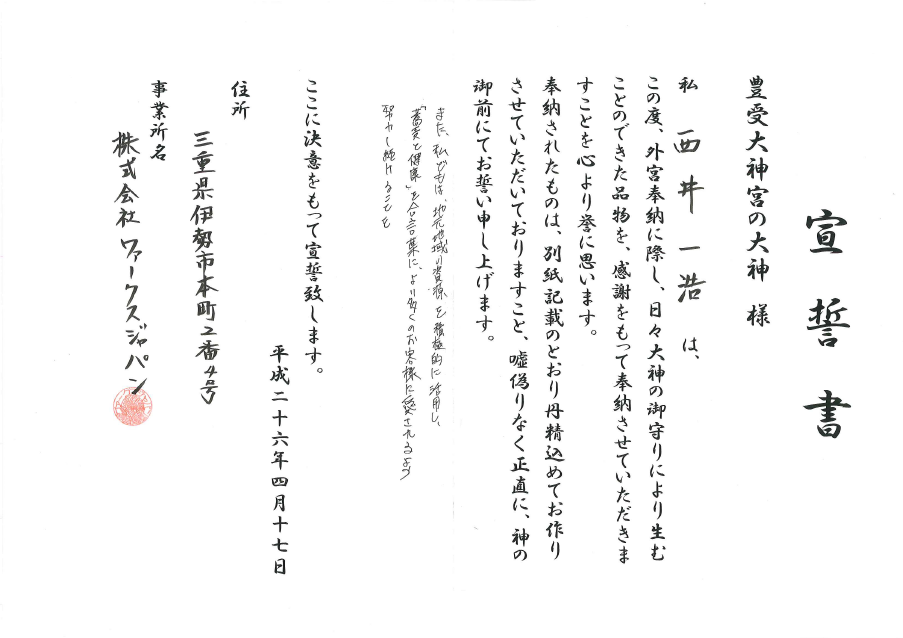 宣誓書
豊受大神宮の大神 様
私 西井一浩 は、
この度、外宮奉納に際し、日々大神の御守りにより生む
ことのできた品物を、感謝をもって奉納させていただきま
すことを心より誉に思います。
奉納されたものは、別紙記載のとおり丹精込めてお作り
させていただいておりますこと、嘘偽りなく正直に、神の
御前にてお誓い申し上げます。
また、私どもは、地元地域の資源を積極的に活用し、
「蕎麦と健康」を合言葉に、より多くのお客様に愛されるよう
努力し続けることを
ここに決意をもって宣誓致します。
平成二十六年四月十七日
住所
三重県伊勢市本町2番4号
事業所名
株式会社 ワークスジャパン